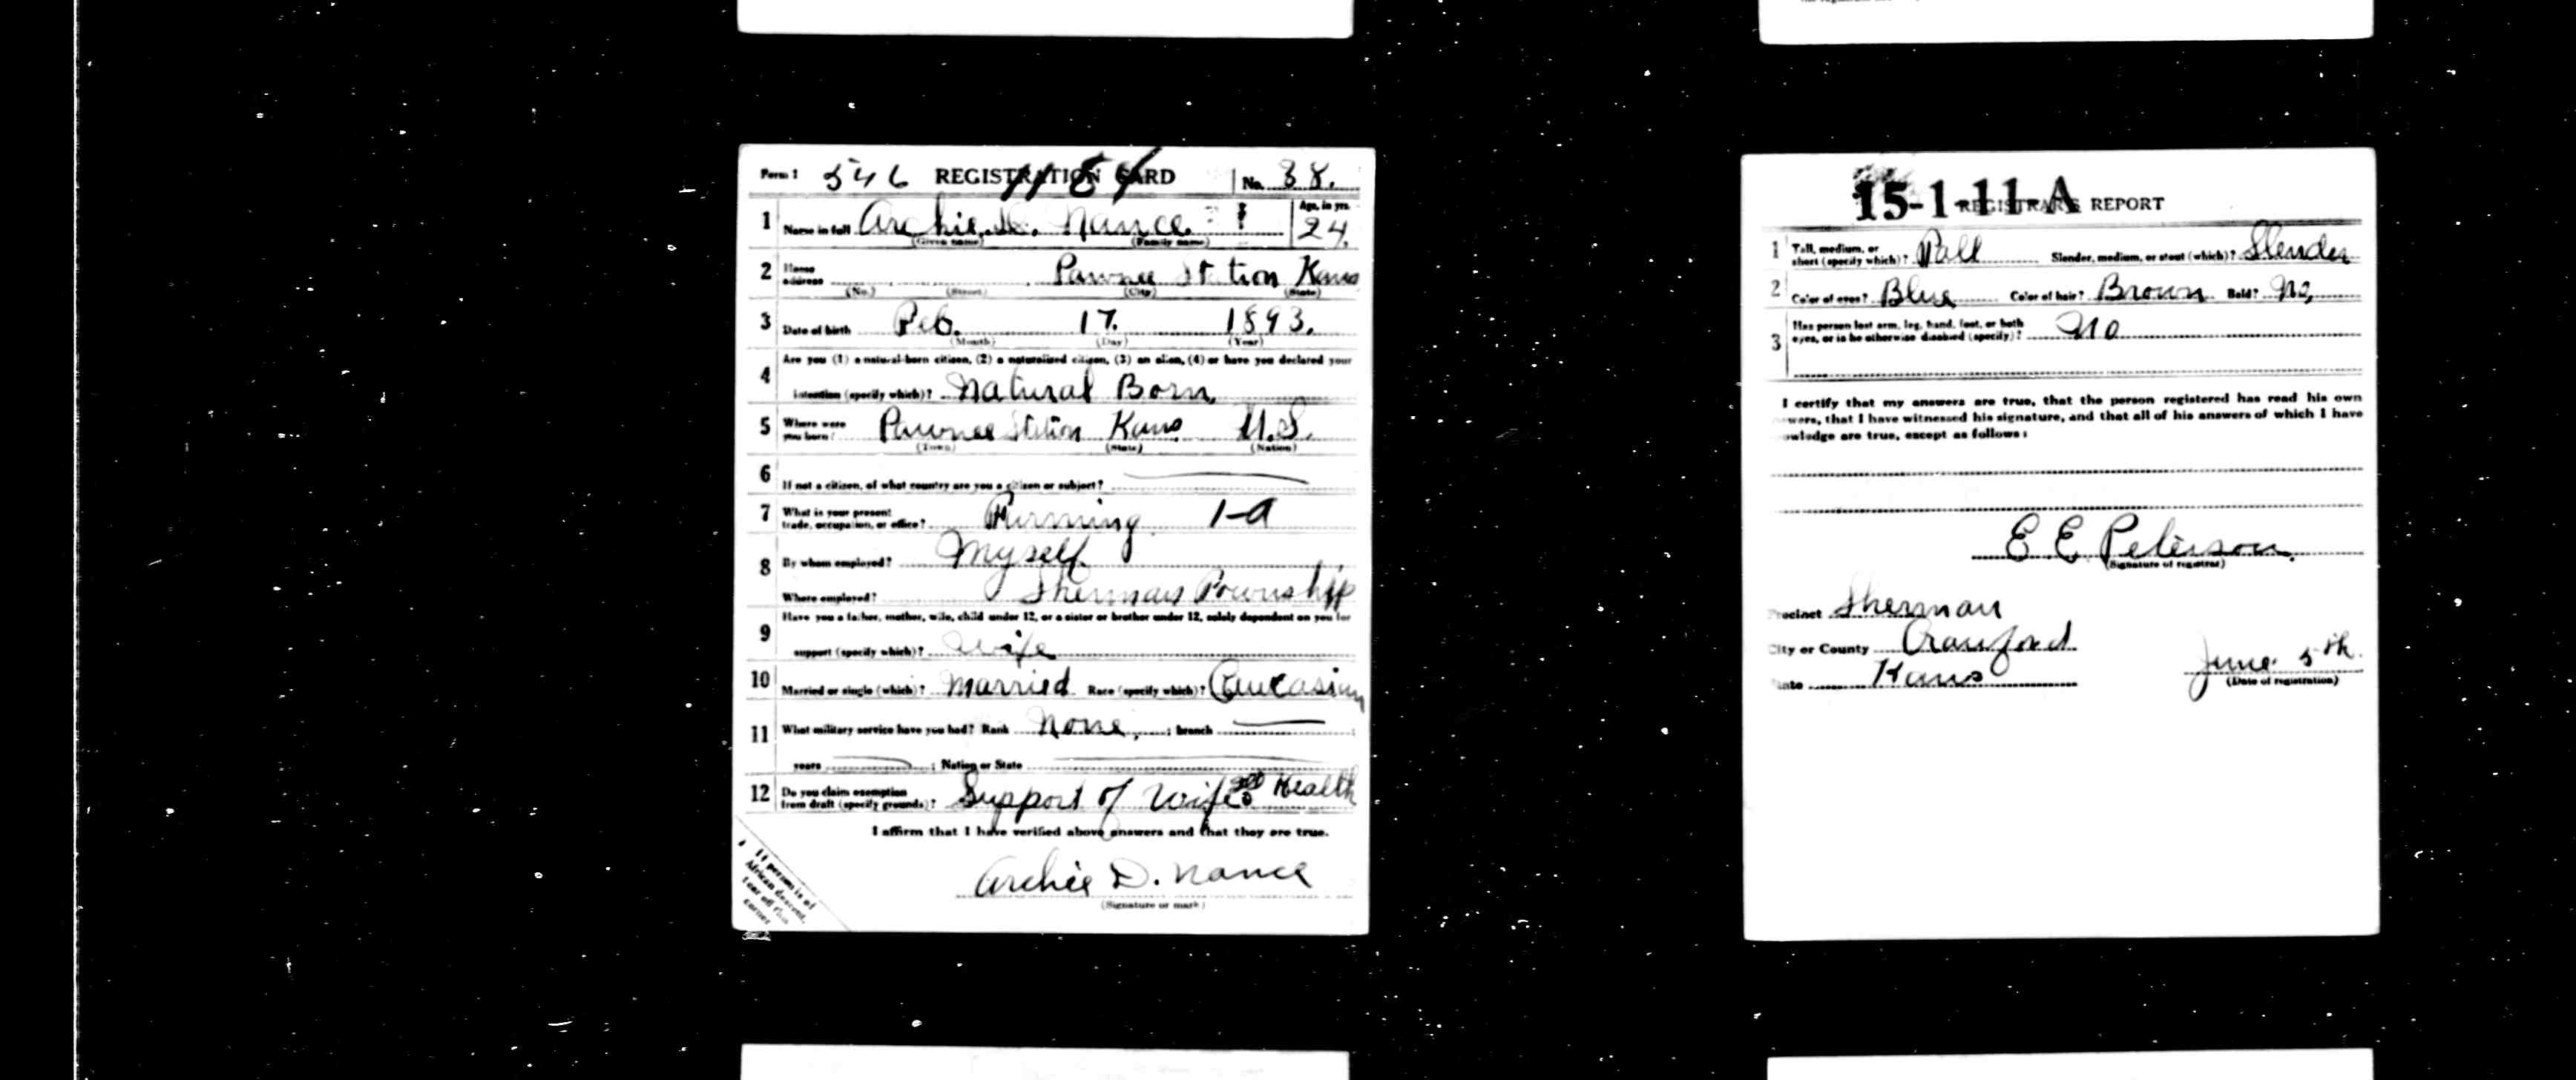 Form 1 546 REGISTRATION CARD No. 38.
1 Name in full Archie D. Nance Age, in yrs. 24.
(Given name) (Family name)
2 Home address Pawnee Station Kans
(No.) (Street) (City) (State)
3 Date of birth Feb. 17. 1893.
(Month) (Day) (Year)
4 Are you (1) a natural-born citizen, (2) a naturalized citizen, (3) an alien, (4) or have you declared your
intention (specify which)? Natural Born,
5 Where were you born? Pawnee Station Kans U.S.
(Town) (State) (Nation)
6 If not a citizen, of what country are you a citizen or subject?
7 What is your present trade, occupation, or office? Farming 1-A
8 By whom employed? Myself
Where employed? Sherman Township
9 Have you a father, mother, wife, child under 12, or a sister or brother under 12, solely dependent on you for
support (specify which)? Wife
10 Married or single (which)? Married Race (specify which)? Caucasian
11 What military service have you had? Rank None, ; branch
years ; Nation or State
12 Do you claim exemption from draft (specify grounds)? Support of Wife Health
I affirm that I have verified above answers and that they are true.
Archie D. Nance
(Signature or mark)
If person is of
African descent,
tear off this
corner
15-1-11-A
REGISTRAR'S REPORT
1 Tall, medium, or short (specify which)? Tall Slender, medium, or stout (which)? Slender
2 Color of eyes? Blue Color of hair? Brown Bald? No,
3 Has person lost arm, leg, hand, foot, or both
eyes, or is he otherwise disabled (specify)? No
I certify that my answers are true, that the person registered has read his own
wers, that I have witnessed his signature, and that all of his answers of which I have
owledge are true, except as follows:
E E Peterson
(Signature of registrar)
Precinct Sherman
City or County Crawford
State Kans
June 5th.
(Date of registration)